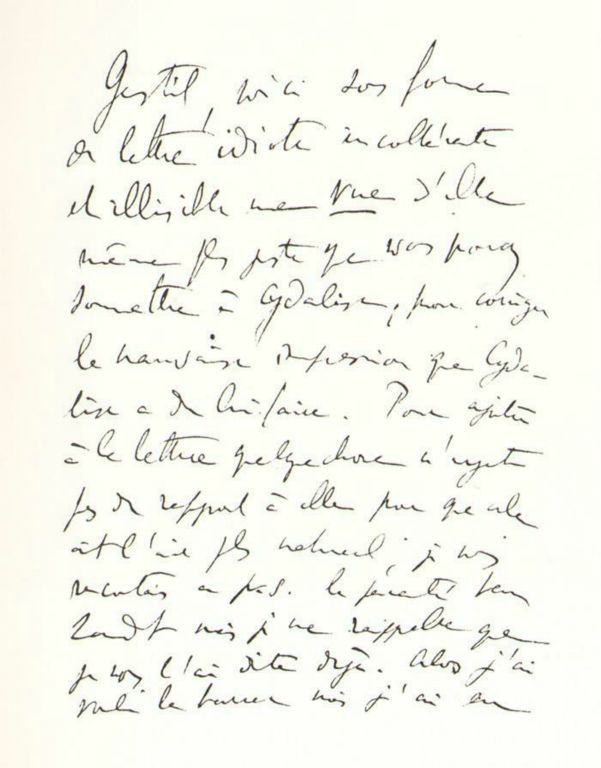 Gentil, voici sous forme
de lettre idiote incohérente
et illisible une vue d'elle
même plus juste que vous pourrez
soumettre à Cydalise, pour corriger
la mauvaise impression que Cyda-
lise a du lui faire. Pour ajouter
à la lettre quelque chose n'ayant
pas de rapport à elle pour que cela
ait l'air plus naturel, je vous
racontais
mais je me rappelle que
je vous l'ai dite déjà. Alors j'ai
voulu la barrer mais j'ai eu